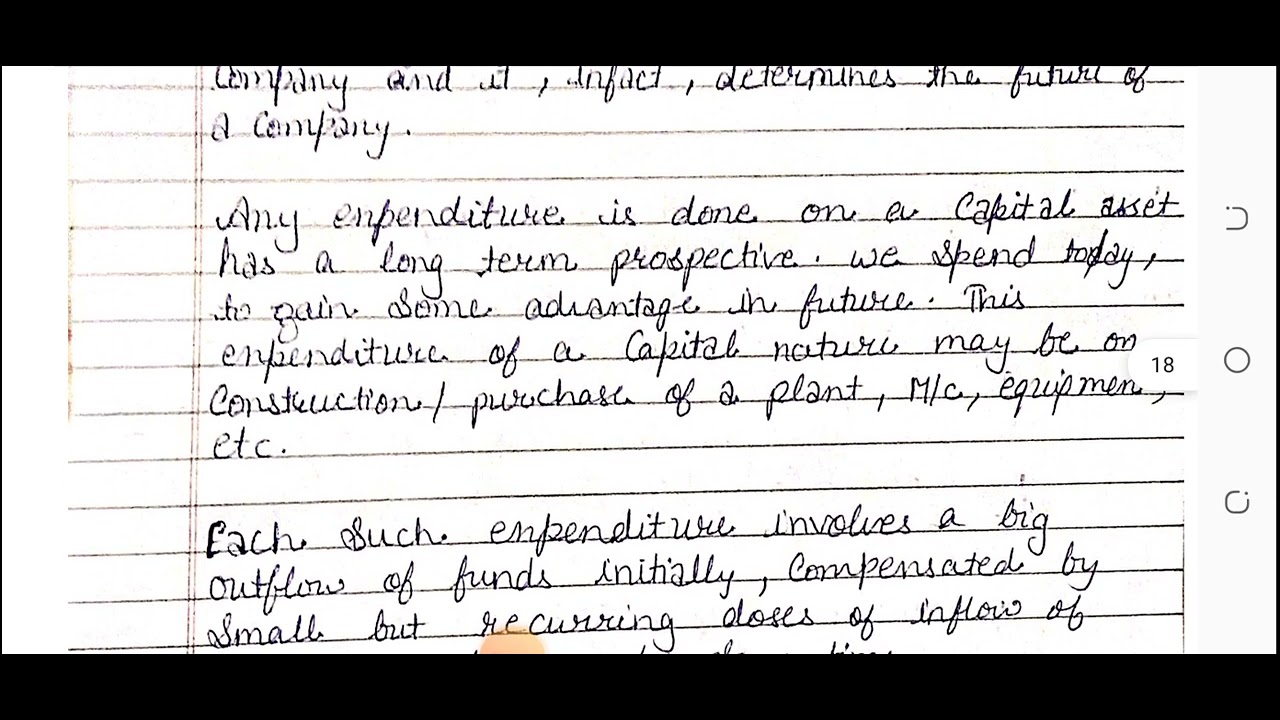 Company and it, infact, determines the future of
a Company.
Any enpenditure is done on a Capital asset
has a long term prospective. we spend today,
to gain some advantage in future. This
enpenditure of a Capital nature may be on
Construction/ purchase of a plant, M/c, equipmen,
etc.
18
Each Such enpenditure involves a big
outflow of funds initially, Compensated by
small but recurring doses of inflow of